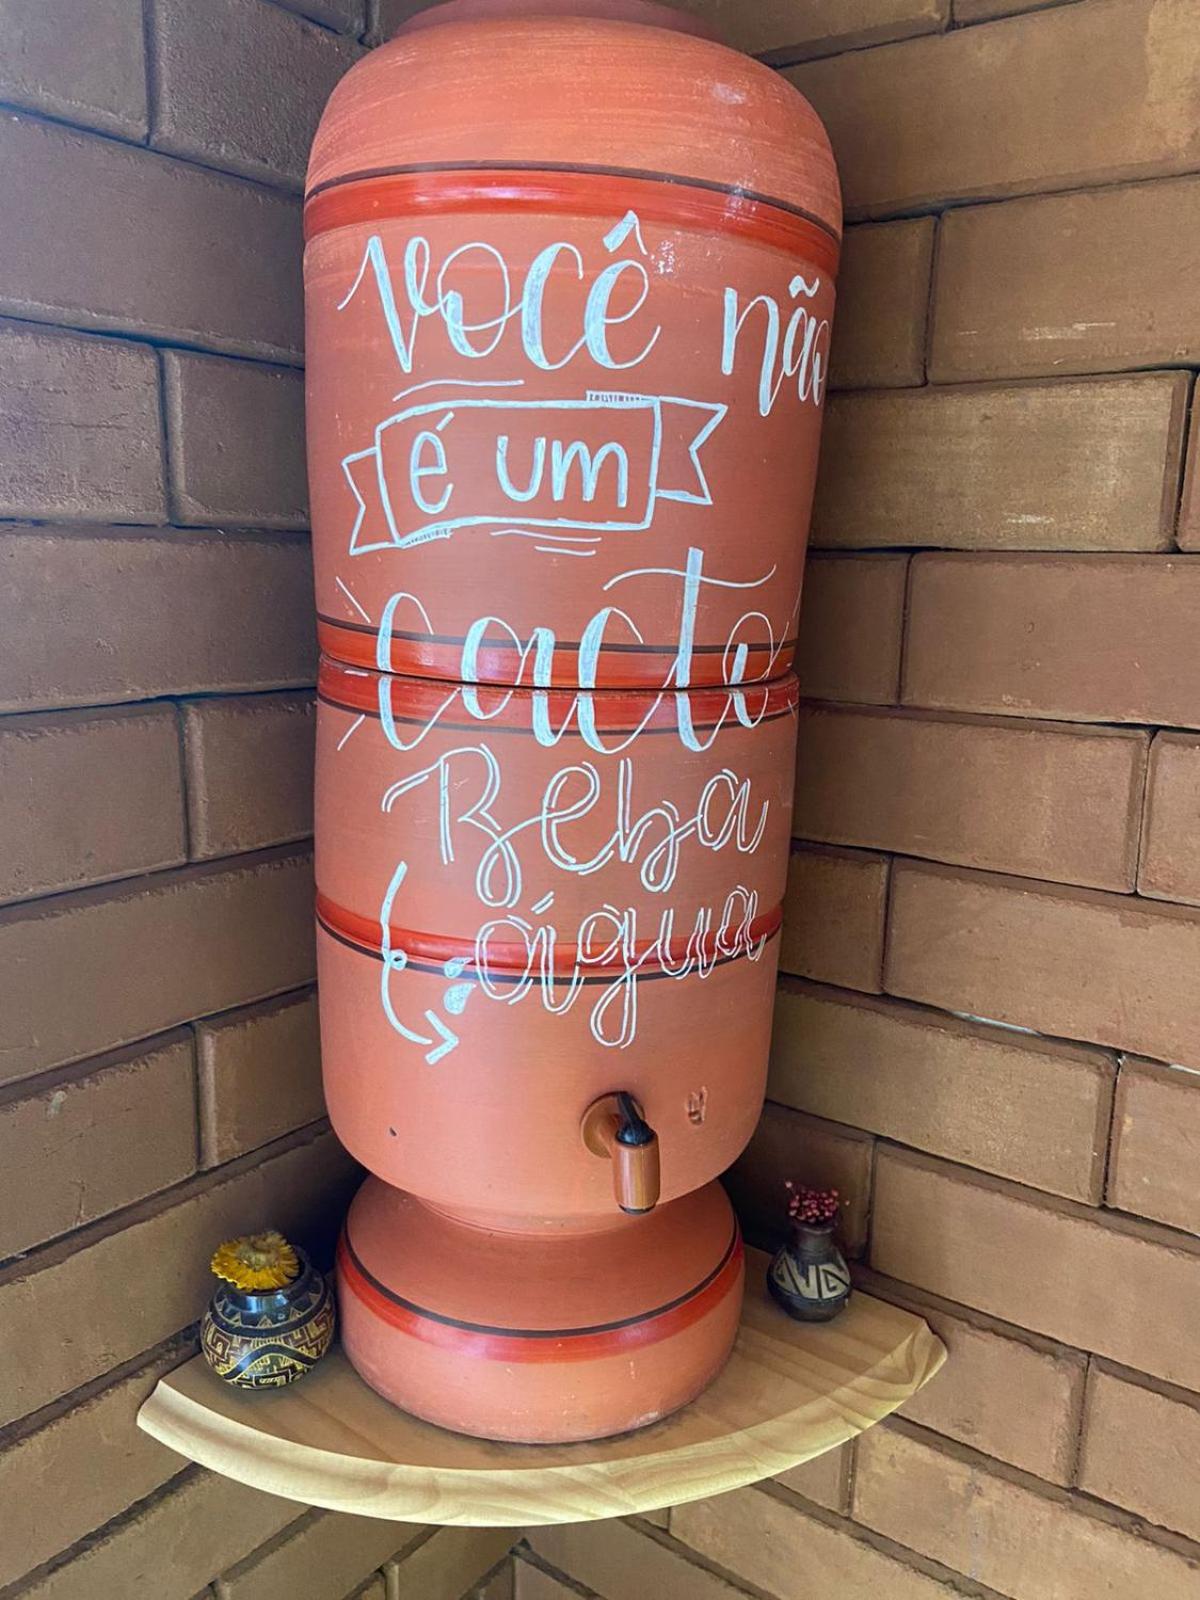 você não
é um
cacto
Beba
água